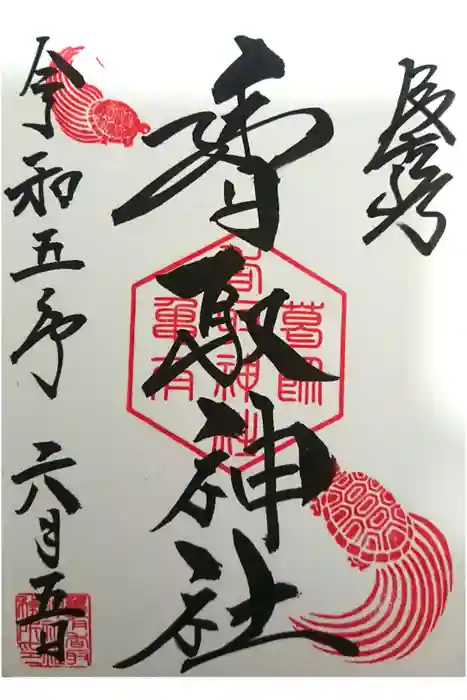 香取神社
葛飾
香取神社
亀有
令和五年 六月五日